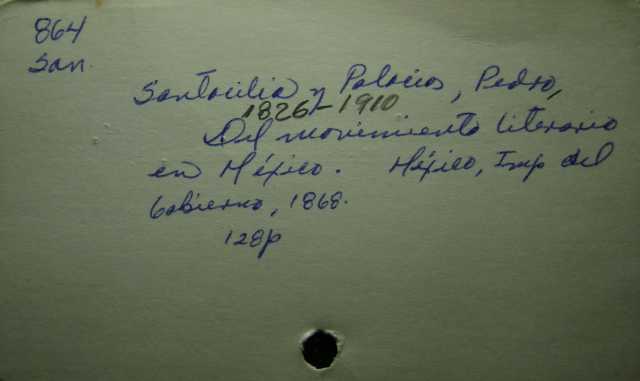 864
San.
Santacilia y Palacios, Pedro,
1826-1910
Del movimiento literario
en México. México, Imp del
Gobierno, 1868.
128p